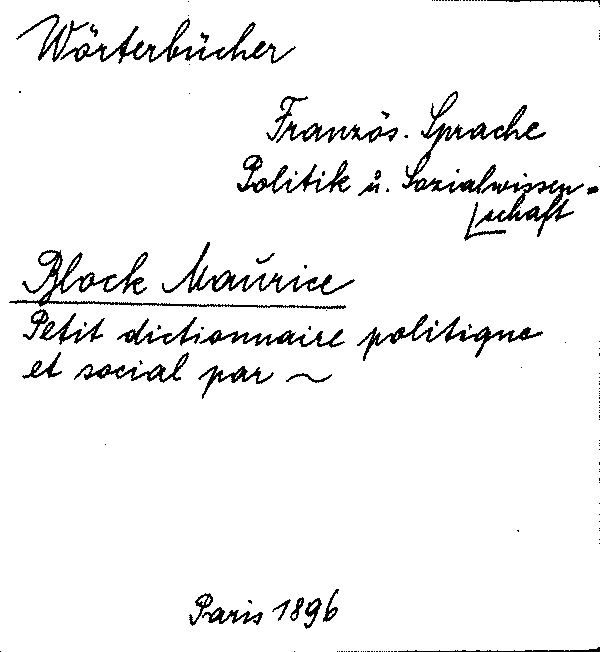 Wörterbücher
Französ. Sprache
Politik u. Sozialwissen=
schaft
Block Maurice
Petit dictionnaire politique
et social par ~
Paris 1896